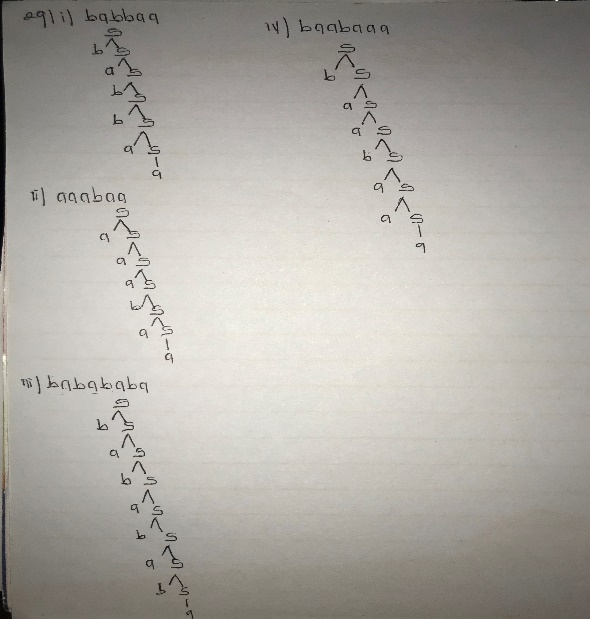 2a) i) babbaa
S
b S
a S
b S
b S
a S
a
ii) aaabaa
S
a S
a S
a S
b S
a S
a
iii) babababa
S
b S
a S
b S
a S
b S
a S
b S
a
iv) baabaaa
S
b S
a S
a S
b S
a S
a S
a